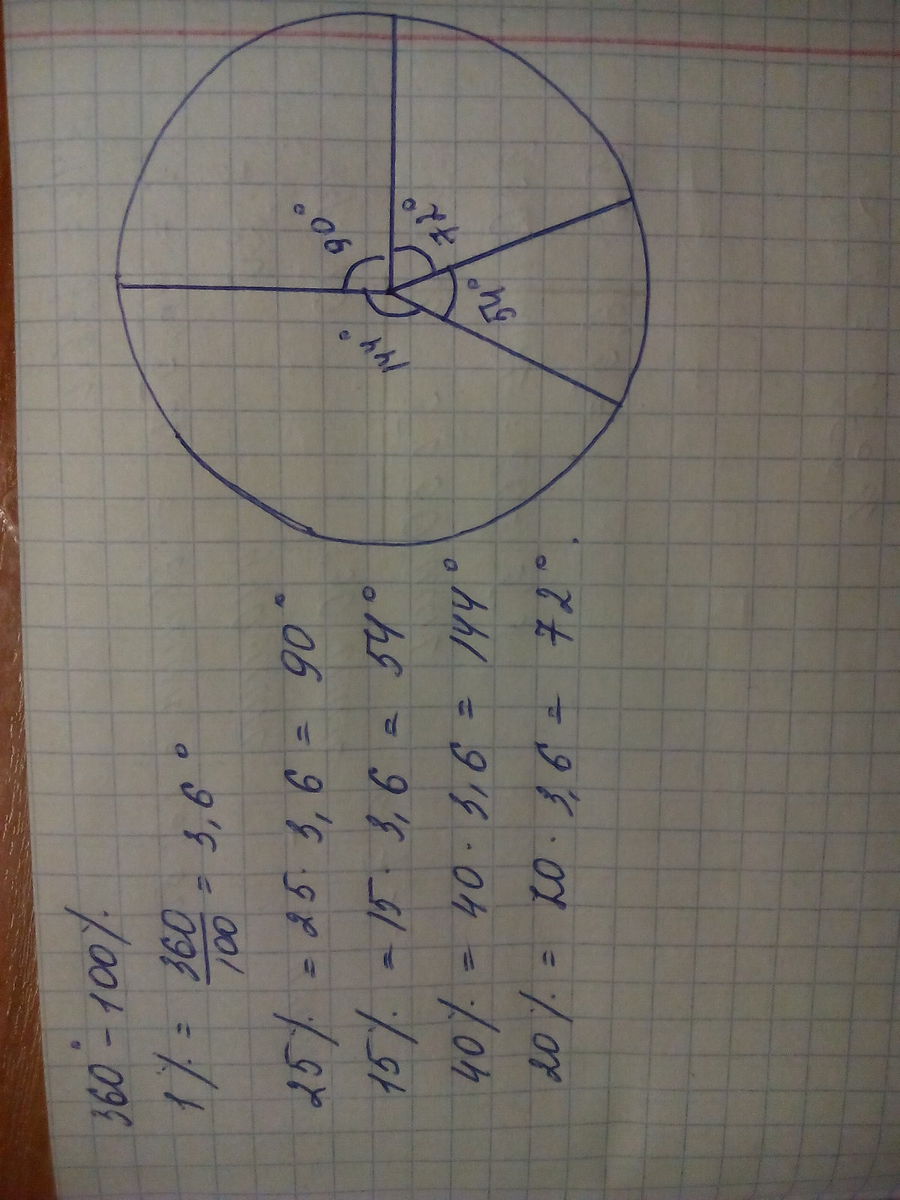 360° - 100%
1% = 360/100 = 3,6°
25% = 25 · 3,6 = 90°
15% = 15 · 3,6 = 54°
40% = 40 · 3,6 = 144°
20% = 20 · 3,6 = 72°.
90°
72°
144°
54°